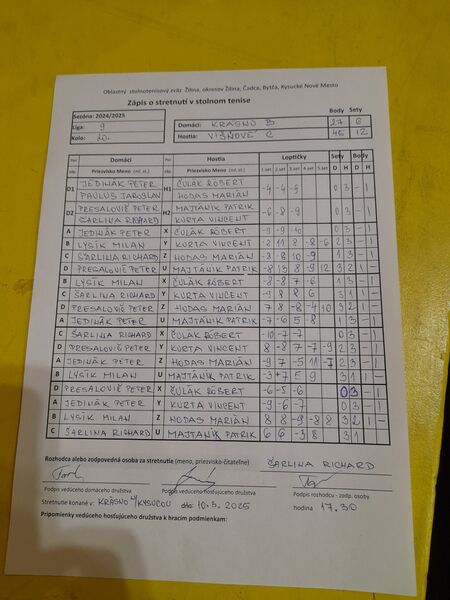 Oblastný stolnotenisový zväz Žilina, okresov Žilina, Čadca, Bytča, Kysucké Nové Mesto
Zápis o stretnutí v stolnom tenise
Body Sety
Sezóna: 2024/2025
Domáci: KRASNO B 27 6
Liga: 9
Hostia: VIŠŇOVÉ C 45 12
Kolo: 20.
Domáci Hostia Loptičky Sety Body
Priezvisko Meno (ml. st.) Priezvisko Meno (ml. st.) 1.set 2.set 3.set 4.set 5.set D H D H
D1 JEDINÁK PETER H1 ČULÁK RÓBERT -4 -4 -9 0 3 - 1
PAULUS JAROSLAV HODAS MARIÁN
D2 PRESALOVIČ PETER H2 MAJTÁNIK PATRIK -6 -8 -9 0 3 - 1
ŠARLINA RICHARD KURTA VINCENT
A JEDINÁK PETER X ČULÁK RÓBERT -9 -9 10 0 3 - 1
B LYSÍK MILAN Y KURTA VINCENT -8 11 8 -8 -6 2 3 - 1
C ŠARLINA RICHARD Z HODAS MARIÁN -3 8 10 -9 1 3 - 1
D PRESALOVIČ PETER U MAJTÁNIK PATRIK -8 13 8 -9 12 3 2 1 -
B LYSÍK MILAN X ČULÁK RÓBERT -8 -8 7 -6 1 3 - 1
C ŠARLINA RICHARD Y KURTA VINCENT -9 8 8 6 3 1 1 -
D PRESALOVIČ PETER Z HODAS MARIÁN 7 8 -8 -4 10 3 2 1 -
A JEDINÁK PETER U MAJTÁNIK PATRIK -7 -6 5 8 1 3 - 1
C ŠARLINA RICHARD X ČULÁK RÓBERT -10 -7 -7 0 3 - 1
D PRESALOVIČ PETER Y KURTA VINCENT 8 -8 7 -7 -9 2 3 - 1
A JEDINÁK PETER Z HODAS MARIÁN -9 7 -5 11 -7 2 3 - 1
B LYSÍK MILAN U MAJTÁNIK PATRIK -3 +7 5 9 3 1 1 -
D PRESALOVIČ PETER X ČULÁK RÓBERT -6 -5 -6 0 3 - 1
A JEDINÁK PETER Y KURTA VINCENT -9 -6 -7 0 3 - 1
B LYSÍK MILAN Z HODAS MARIÁN 8 8 -9 -8 8 3 2 1 -
C ŠARLINA RICHARD U MAJTÁNIK PATRIK 6 6 -3 8 3 1 1 -
Rozhodca alebo zodpovedná osoba za stretnutie (meno, priezvisko-čitateľne) ŠARLINA RICHARD
Podpis vedúceho domáceho družstva Podpis vedúceho hosťujúceho družstva Podpis rozhodcu - zodp. osoby
Stretnutie konané v: KRASNO n/KYSUCOU dňa: 10.3.2025 hodina 17.30
Pripomienky vedúceho hosťujúceho družstva k hracím podmienkam: